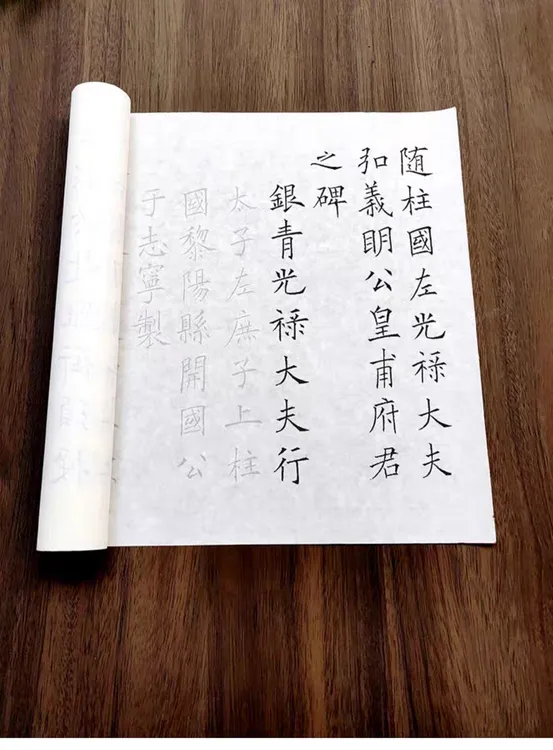 随柱國左光祿大夫
弘義明公皇甫府君
之碑
銀青光祿大夫行
太子左庶子上柱
國黎陽縣開國公
于志寧製